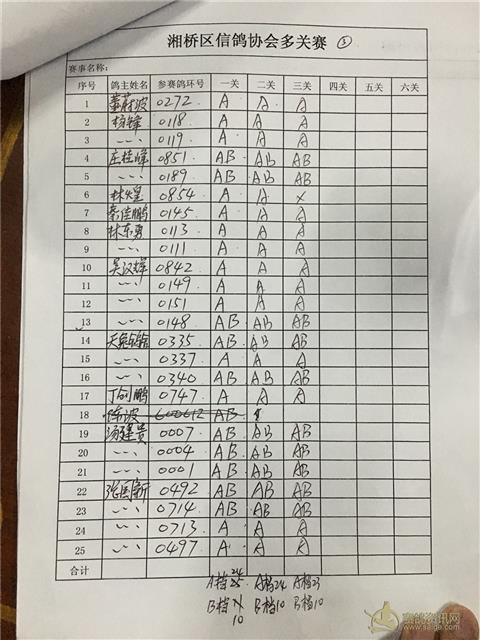 湘桥区信鸽协会多关赛 ③
赛事名称:
序号 鸽主姓名 参赛鸽环号 一关 二关 三关 四关 五关 六关
1 董蔚波 0272 A A A
2 杨锋 0118 A A A
3 〃 0119 A A A
4 庄桂峰 0851 AB AB AB
5 〃 0189 AB AB AB
6 林火煌 0854 A A X
7 秦佳鹏 0145 A A A
8 林东勇 0113 A A A
9 〃 0111 A A A
10 吴汉辉 0842 A A A
11 〃 0149 A A A
12 〃 0151 A A A
13 〃 0148 AB AB AB
14 0335 AB AB AB
15 〃 0337 A A A
16 〃 0340 AB AB AB
17 丁剑鹏 0747 A A A
18 陈波 600612 AB
19 汤建贵 0007 AB AB AB
20 〃 0004 AB AB AB
21 〃 0001 AB AB AB
22 张国新 0492 AB AB AB
23 〃 0714 AB AB AB
24 〃 0713 A A A
25 〃 0497 A A A
合计
24
A档25 A档24 A档23
B档 B档10 B档10
10
赛鸽资讯网
www.saige.com